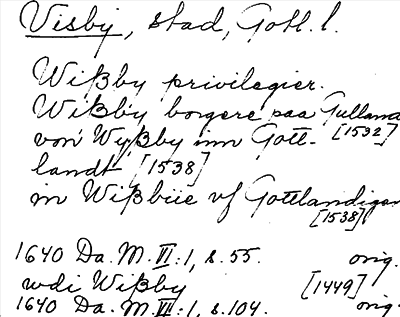 Visby, stad, Gotl. l.
Wißby privilegier.
Wißby borgere paa Gulland
von Wyßby inn Gott- [1532]
landt [1538]
in Wißbüe vf Gottlandigan
[1538]
1640 Da. M. VI:1, s. 55. orig.
wdi Wißby [1449]
1640 Da. M. VII:1, s. 104. orig.